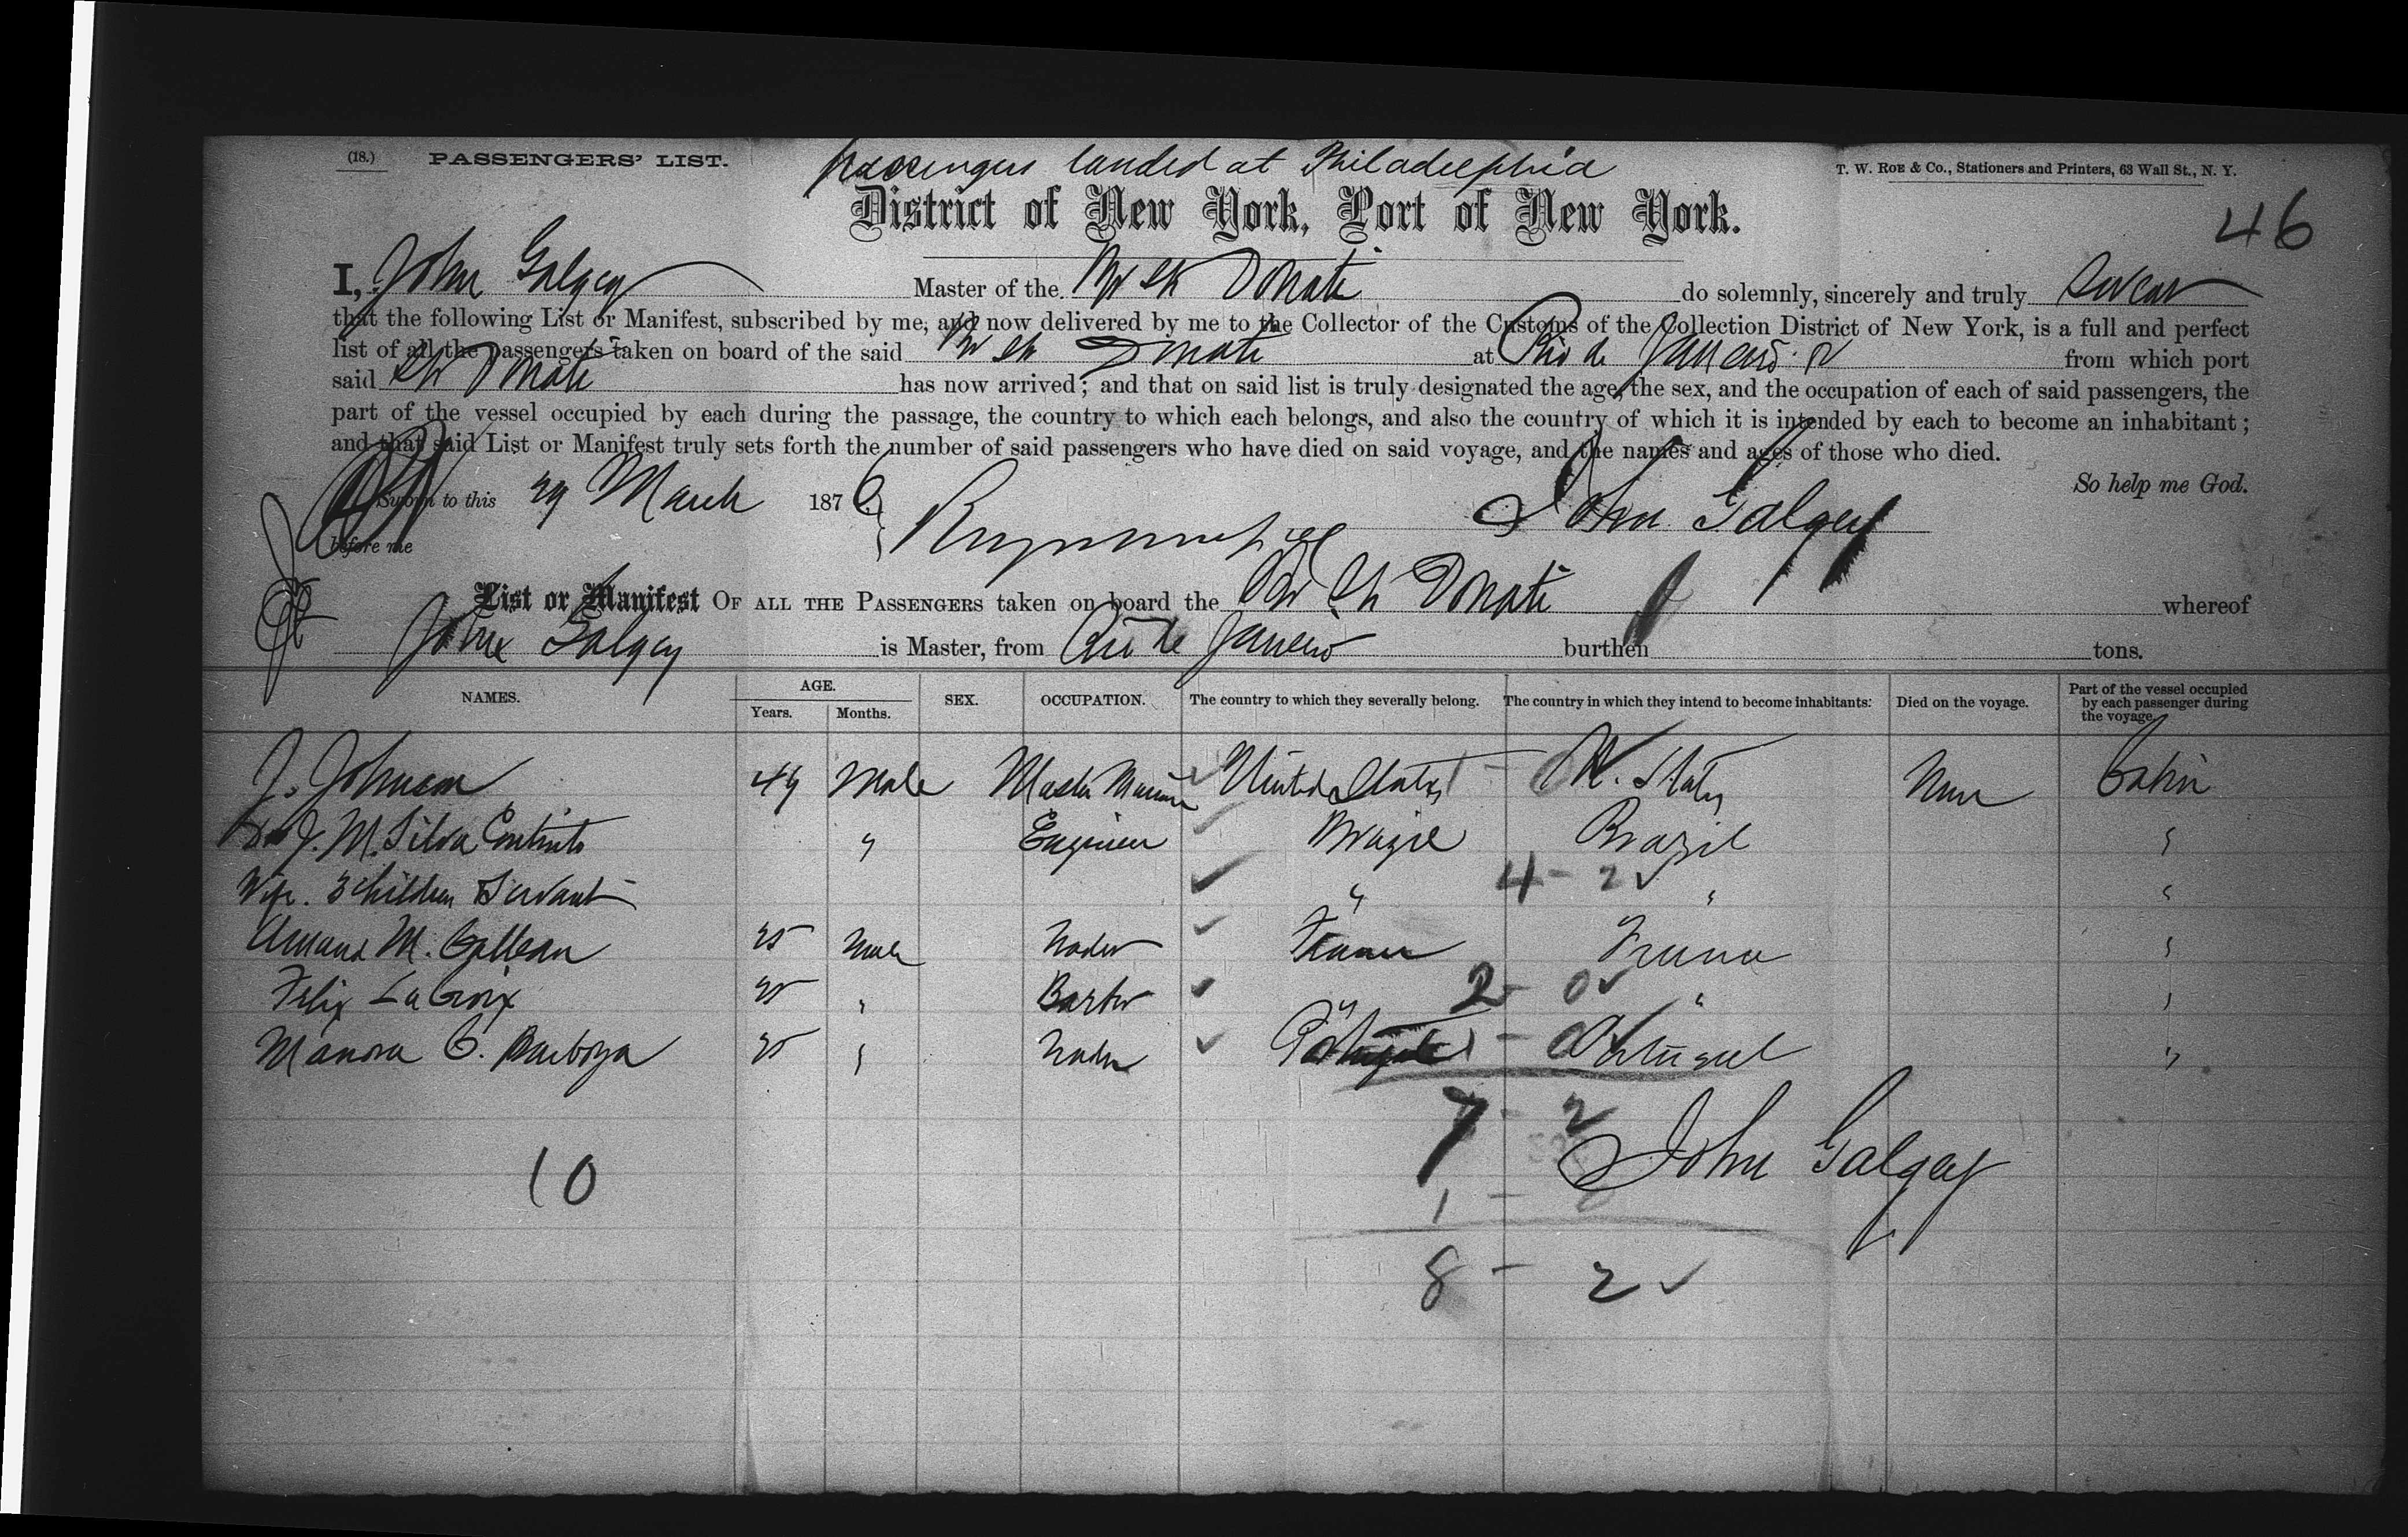 (18.) PASSENGERS' LIST. passengers landed at Philadelphia T. W. ROE & Co., Stationers and Printers, 63 Wall St., N. Y.
District of New York, Port of New York. 46
I, John Galgey Master of the Br Str Donati do solemnly, sincerely and truly Swear
that the following List or Manifest, subscribed by me, and now delivered by me to the Collector of the Customs of the Collection District of New York, is a full and perfect
list of all the passengers taken on board of the said Br Str Donati at Rio de Janeiro from which port
said Str Donati has now arrived; and that on said list is truly designated the age, the sex, and the occupation of each of said passengers, the
part of the vessel occupied by each during the passage, the country to which each belongs, and also the country of which it is intended by each to become an inhabitant;
and that said List or Manifest truly sets forth the number of said passengers who have died on said voyage, and the names and ages of those who died.
So help me God.
Sworn to this 29 March 1876 John Galgey
before me
List or Manifest OF ALL THE PASSENGERS taken on board the Br Str Donati whereof
John Galgey is Master, from Rio de Janeiro burthen tons.
NAMES. AGE. Years. Months. SEX. OCCUPATION. The country to which they severally belong. The country in which they intend to become inhabitants: Died on the voyage. Part of the vessel occupied by each passenger during the voyage.
J. Johnson 49 Male Master Mariner United States 1 - 0 U. States None Cabin
J. M. Silva Coutinto " Engineer Brazil Brazil "
Wife. 3 Children Servant " 4 - 2 " "
M. 25 Male Trader France France "
Felix La Croix 25 " " 2 - 0 " "
C. Barboza 25 " Trader Portugal 1 - 0 Portugal "
7 - 2
John Galgey
10
1 - 0
8 - 2